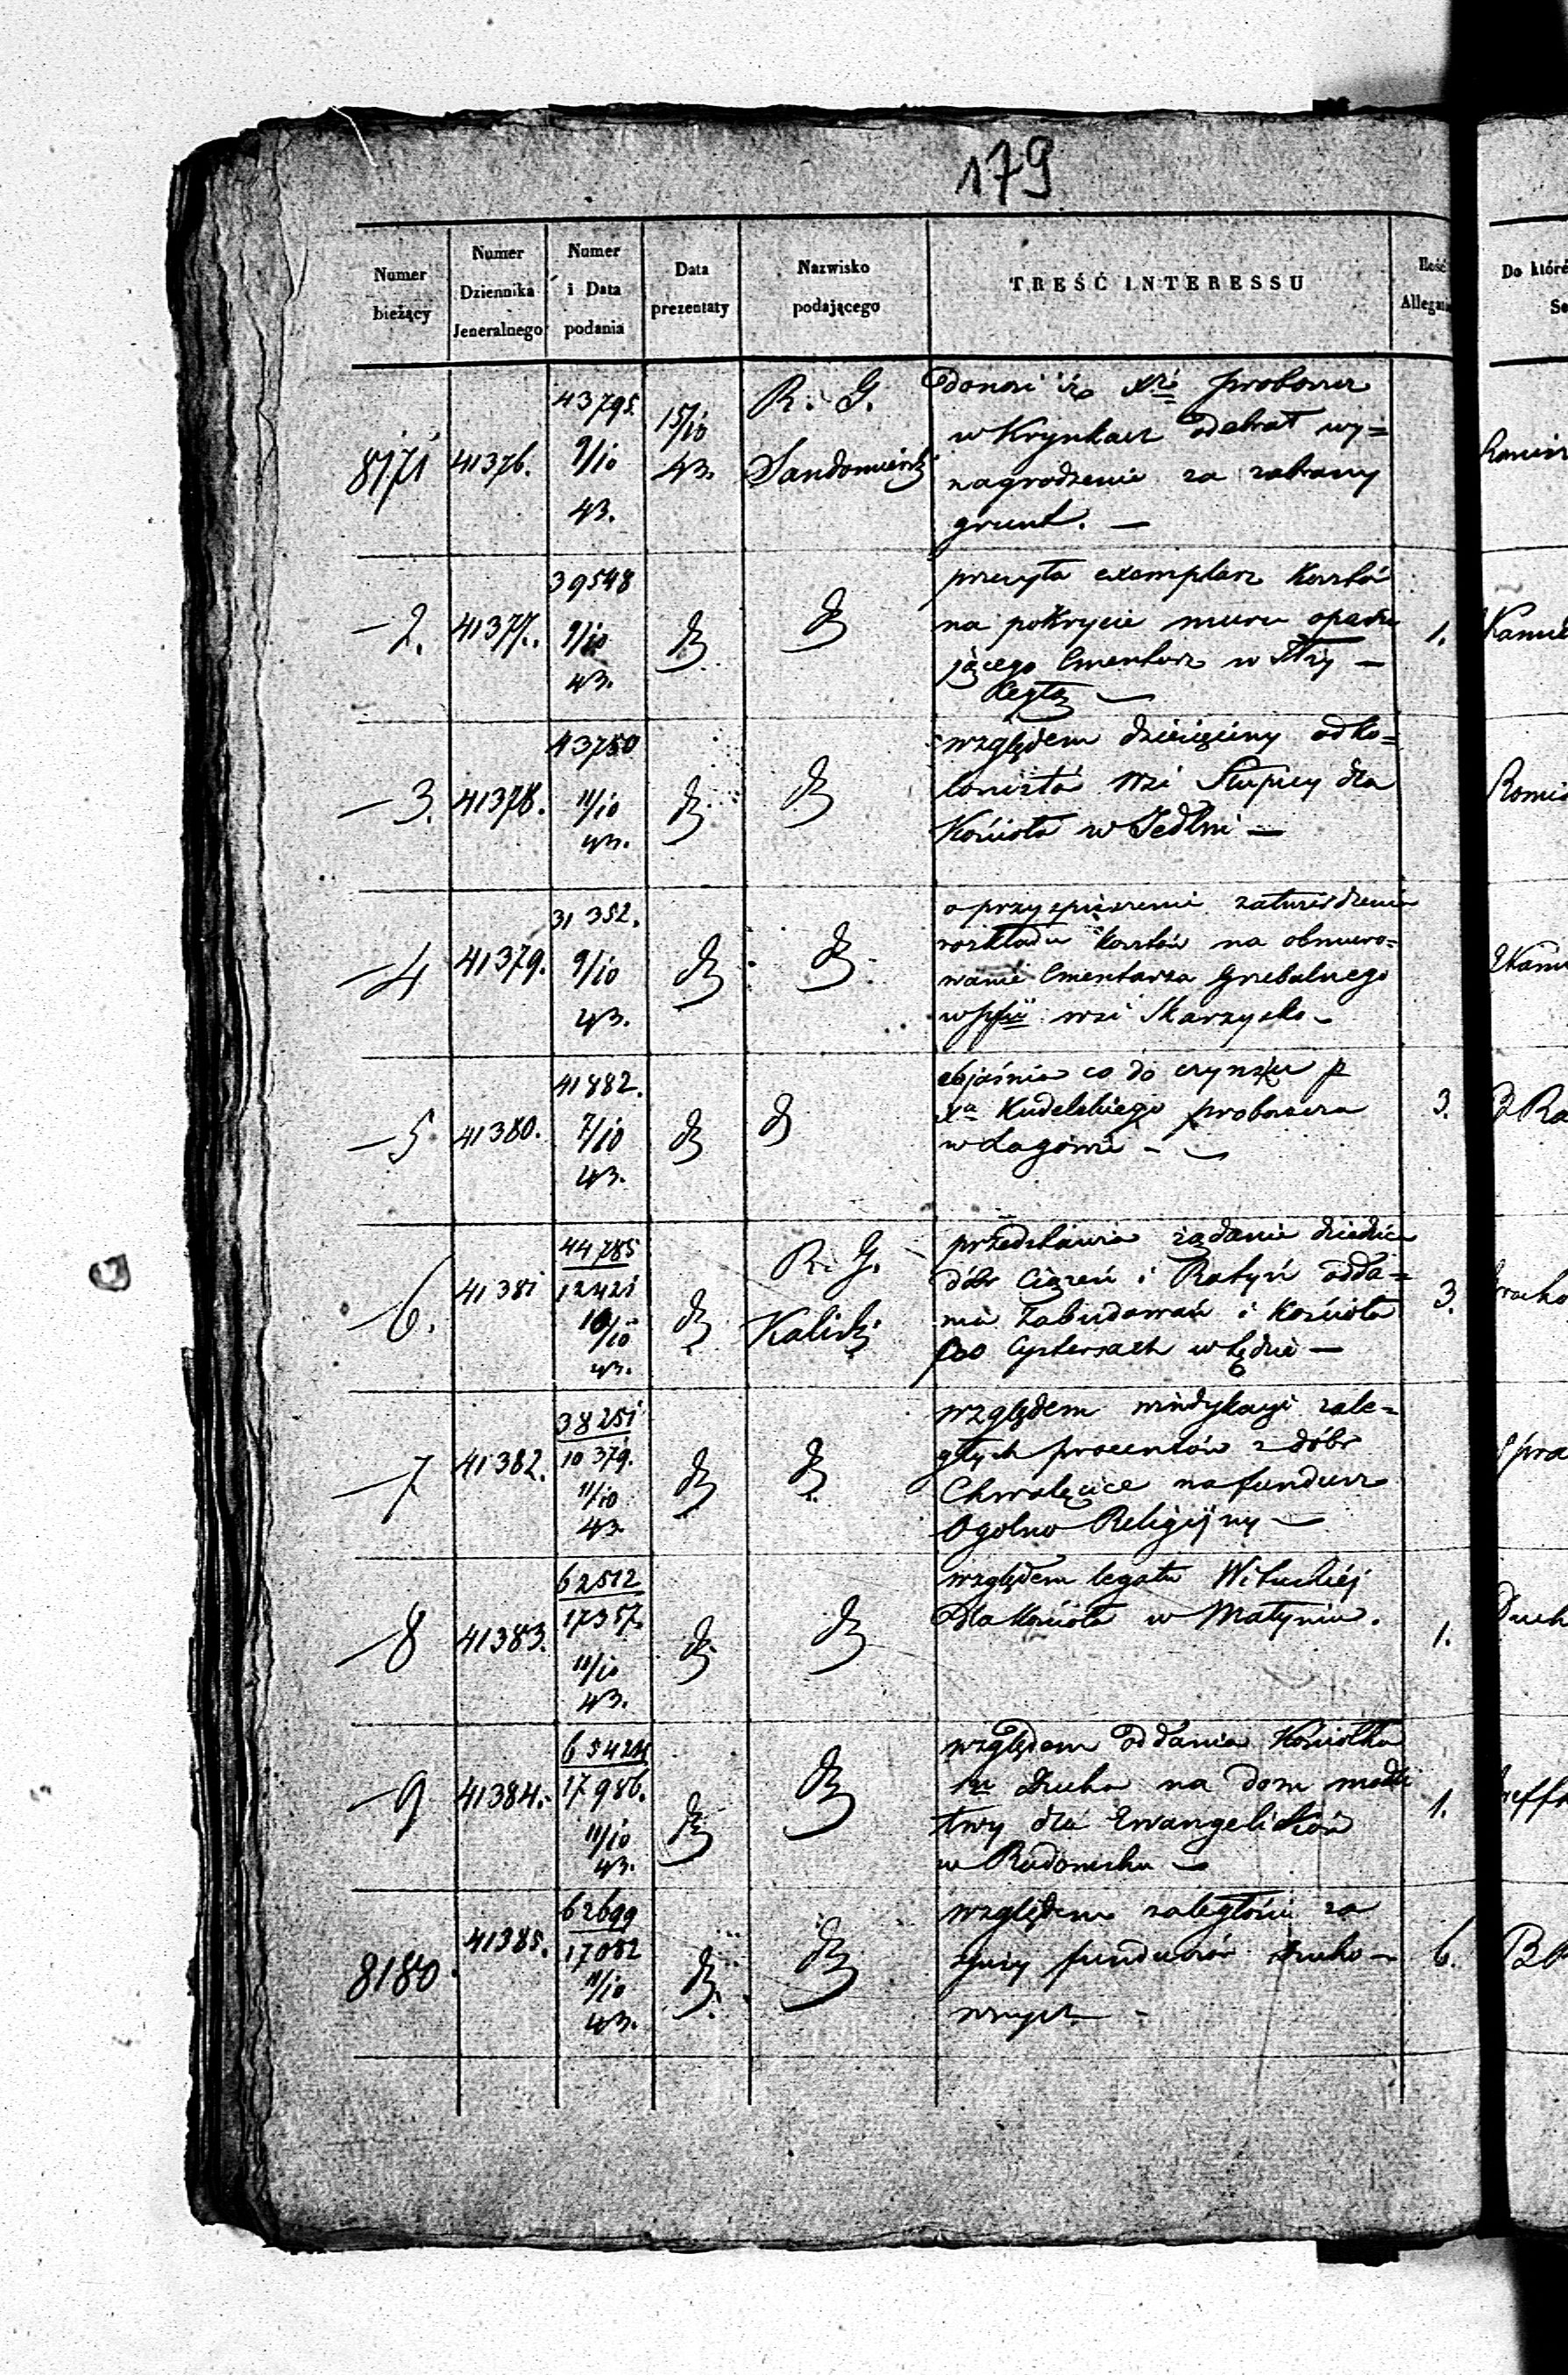 179
Numer bieżący
Numer Dziennika Jeneralnego
Numer i Data podania
Data prezentaty
Nazwisko podającego
TREŚĆ INTERESSU
Ilość
Do które
8171
41376.
43795.
9/10
43.
15/10
43.
R. G.
donosi iż probosz
w Krynkach odebrał wy=
nagrodzenie za zabrany
grunt. —
— 2.
41377.
39548
9/10
43.
przesyła exemplarz kosztów
na pokrycie muru
jącego Cmentarz w
1.
— 3.
41378.
43750
11/10
43.
względem dziesięciny od ko=
lonistów wsi Słupicy dla
Kościoła w Jedlni —
— 4
41379.
31352.
9/10
43.
o przyspieszenie zatwierdzenia
rozkładu kosztów na obmuro=
wanie Cmentarza Grzebalnego
wsi Skarzysko —
— 5
41380.
41882.
7/10
43.
objaśnia co do czynszu p
Xa Kudelskiego proboszcza
w Łagowie —
3.
— 6.
41381
44785
12421
10/10
43.
R. G.
Kaliski
przedstawia żądanie dziedzica
dóbr Ciążeń i Ratyń odda=
nia Zabudowań i Kościoła
poo Cystersach w Lędzie —
3.
— 7
41382.
38251
10379.
11/10
43.
względem windykacyi zale=
głych procentów z dóbr
Chwalęcice na fundusz
Ogolno Religijny —
— 8
41383.
62512
17357.
11/10
43.
względem legatu
Dla Kościoła w Małyniu.
1.
— 9
41384.
17986.
11/10
43.
względem oddania Kościołka
Sgo Ducha na dom modli
twy dla Ewangelików
w Radomsku —
1.
8180
41385.
62699
17082
11/10
43.
względem zaległości za
funduszów Ducho —
wnych —
6.